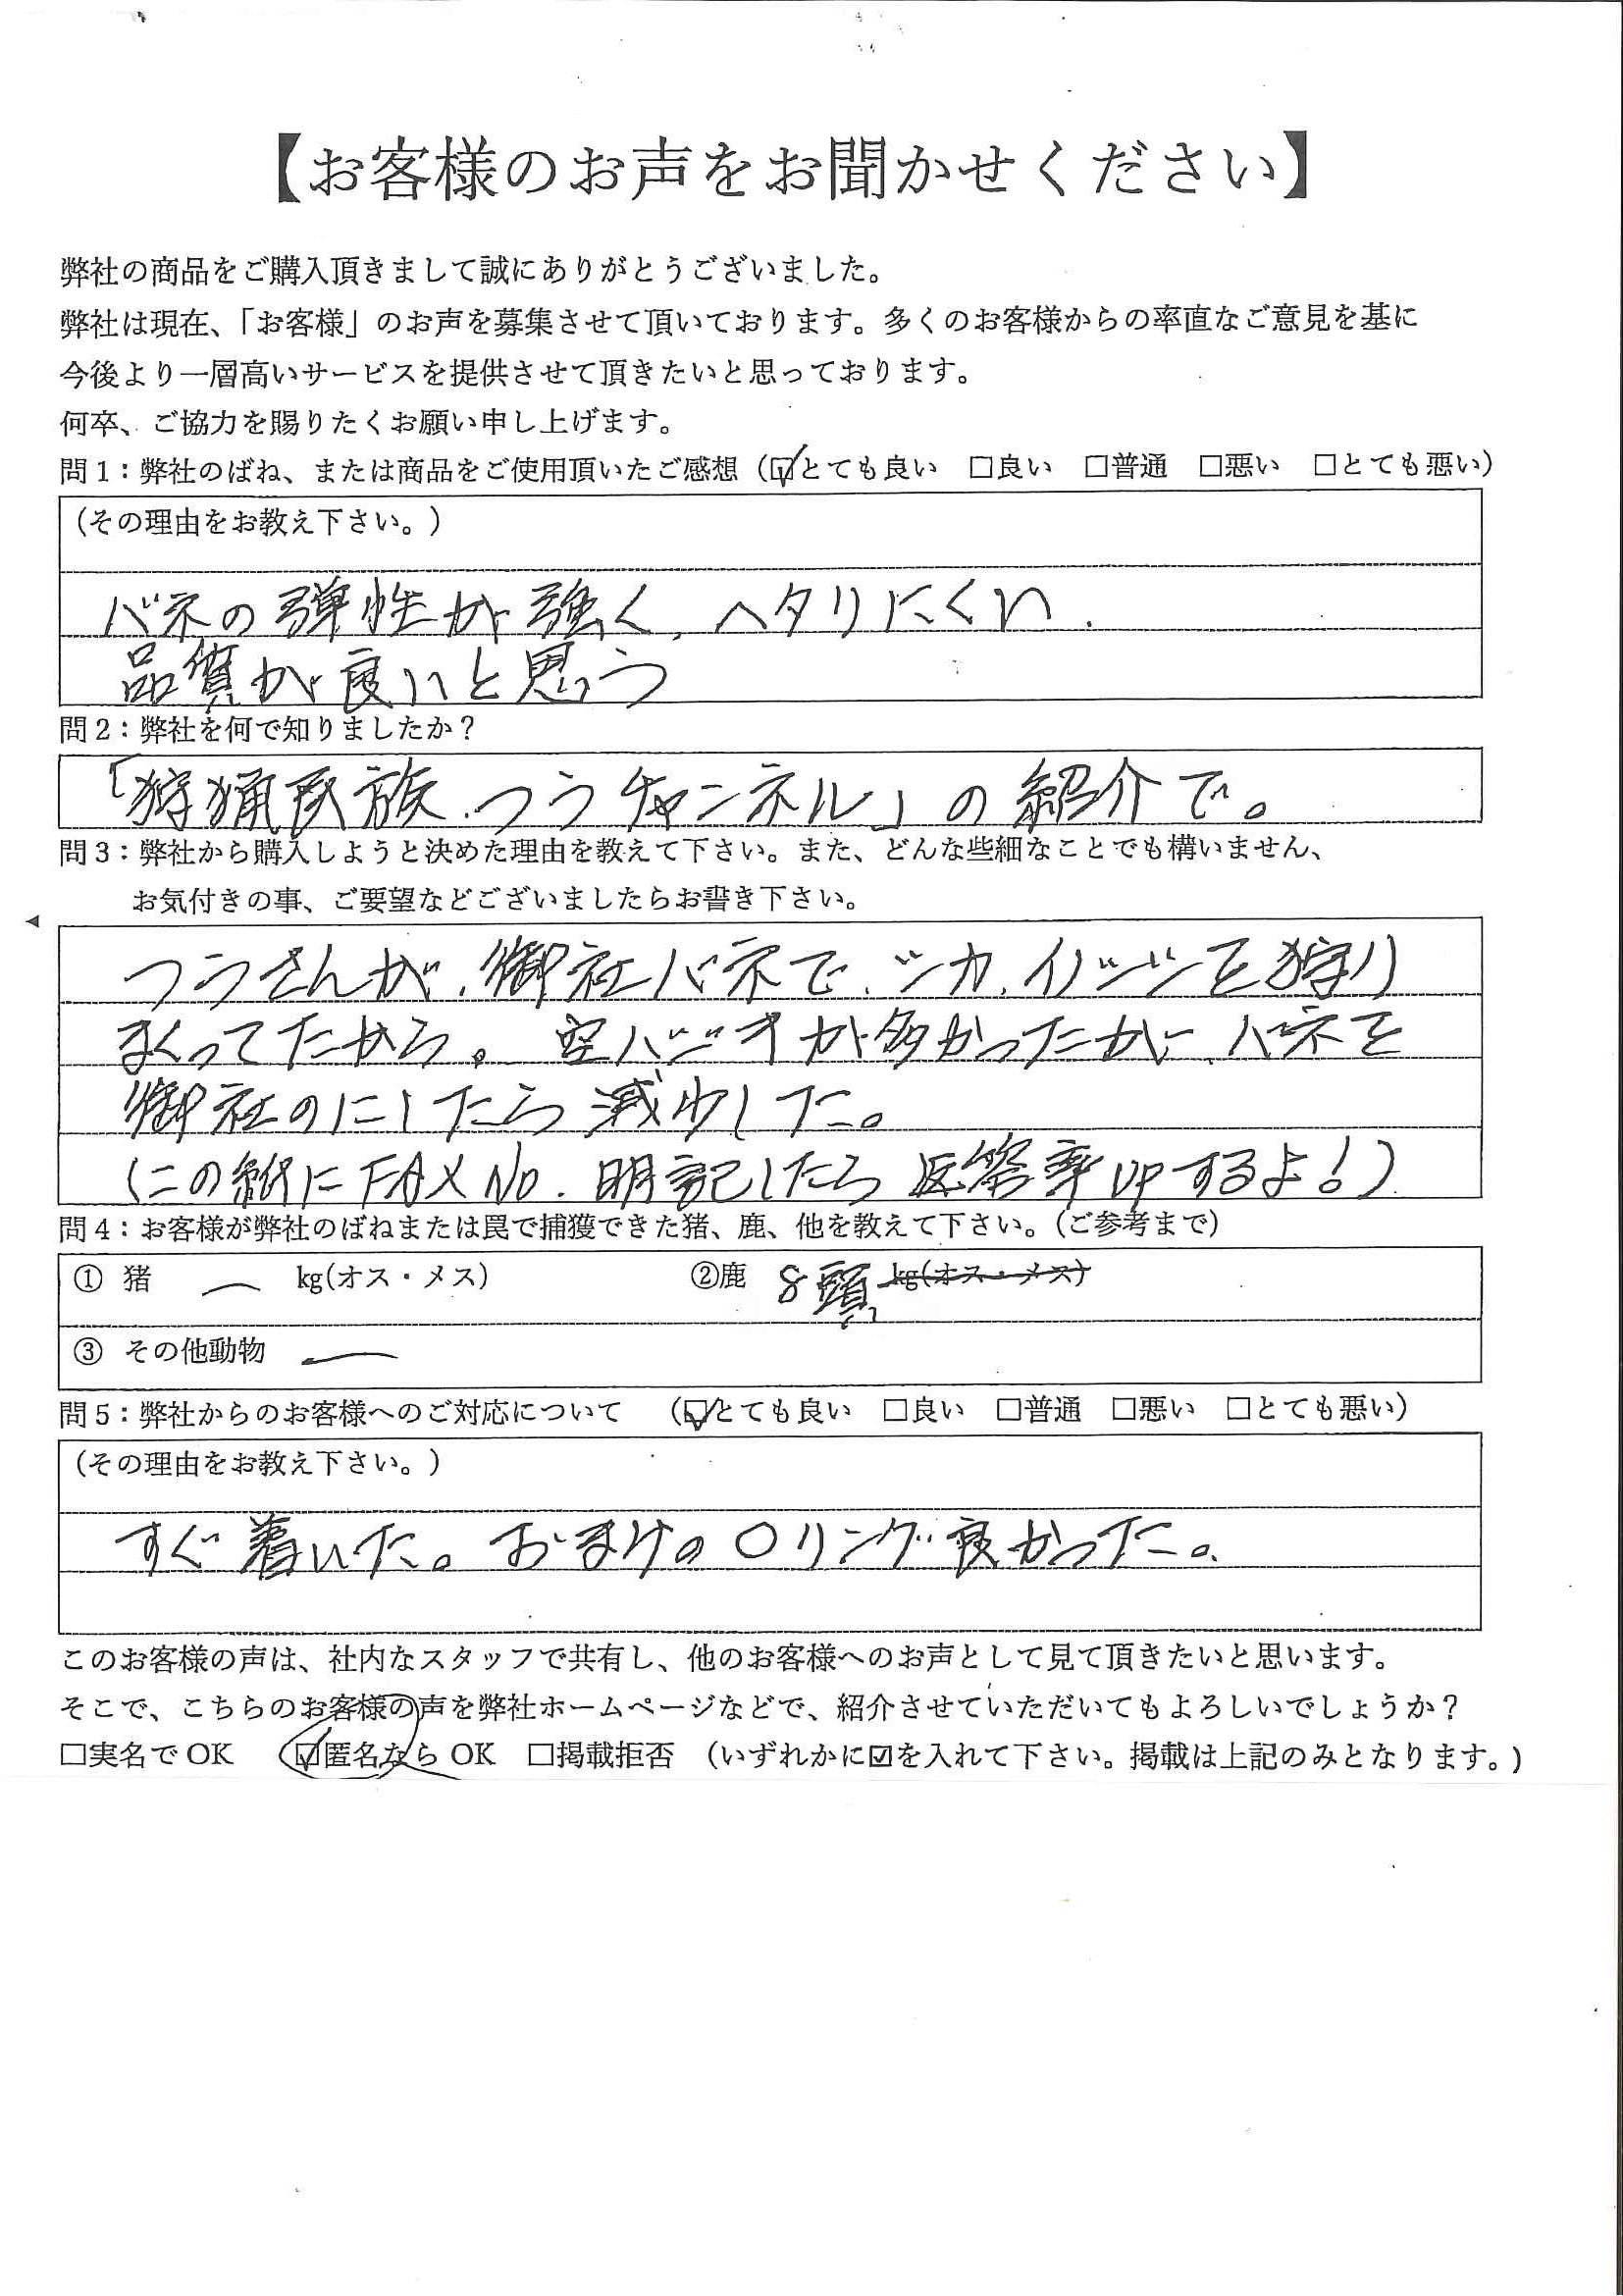 【お客様のお声をお聞かせください】
弊社の商品をご購入頂きまして誠にありがとうございました。
弊社は現在、「お客様」のお声を募集させて頂いております。多くのお客様からの率直なご意見を基に
今後より一層高いサービスを提供させて頂きたいと思っております。
何卒、ご協力を賜りたくお願い申し上げます。
問1:弊社のばね、または商品をご使用頂いたご感想（☑とても良い　□良い　□普通　□悪い　□とても悪い）
（その理由をお教え下さい。）
バネの弾性が強く、ヘタりにくい、
品質が良いと思う
問2:弊社を何で知りましたか?
「狩猟民族つうチャンネル」の紹介で。
問3:弊社から購入しようと決めた理由を教えて下さい。また、どんな些細なことでも構いません、
お気付きの事、ご要望などございましたらお書き下さい。
つうさんが、御社バネで、シカ、イノシシを狩り
まくってたから。空ハジキが多かったが、バネを
御社のにしたら減少した。
（この紙にFAX No. 明記したら返答率UPするよ！）
問4:お客様が弊社のばねまたは罠で捕獲できた猪、鹿、他を教えて下さい。（ご参考まで）
① 猪　ー　kg(オス・メス)　②鹿　8頭 kg(オス・メス)
③ その他動物　ー
問5:弊社からのお客様へのご対応について　（☑とても良い　□良い　□普通　□悪い　□とても悪い）
（その理由をお教え下さい。）
すぐ着いた。おまけのOリング良かった。
このお客様の声は、社内なスタッフで共有し、他のお客様へのお声として見て頂きたいと思います。
そこで、こちらのお客様の声を弊社ホームページなどで、紹介させていただいてもよろしいでしょうか?
□実名でOK　☑匿名ならOK　□掲載拒否　（いずれかに☑を入れて下さい。掲載は上記のみとなります。)